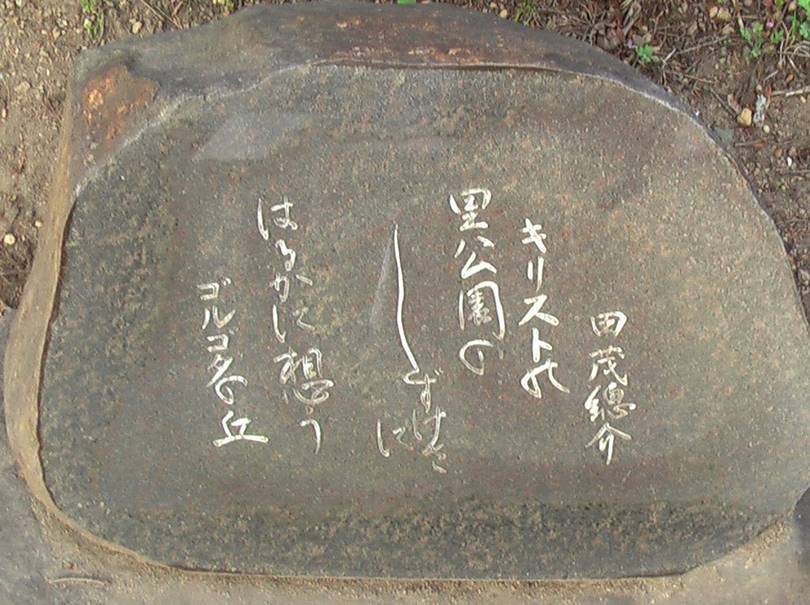 田茂總介
キリストの
里公園の
しずけさに
はるかに想う
ゴルゴタの丘